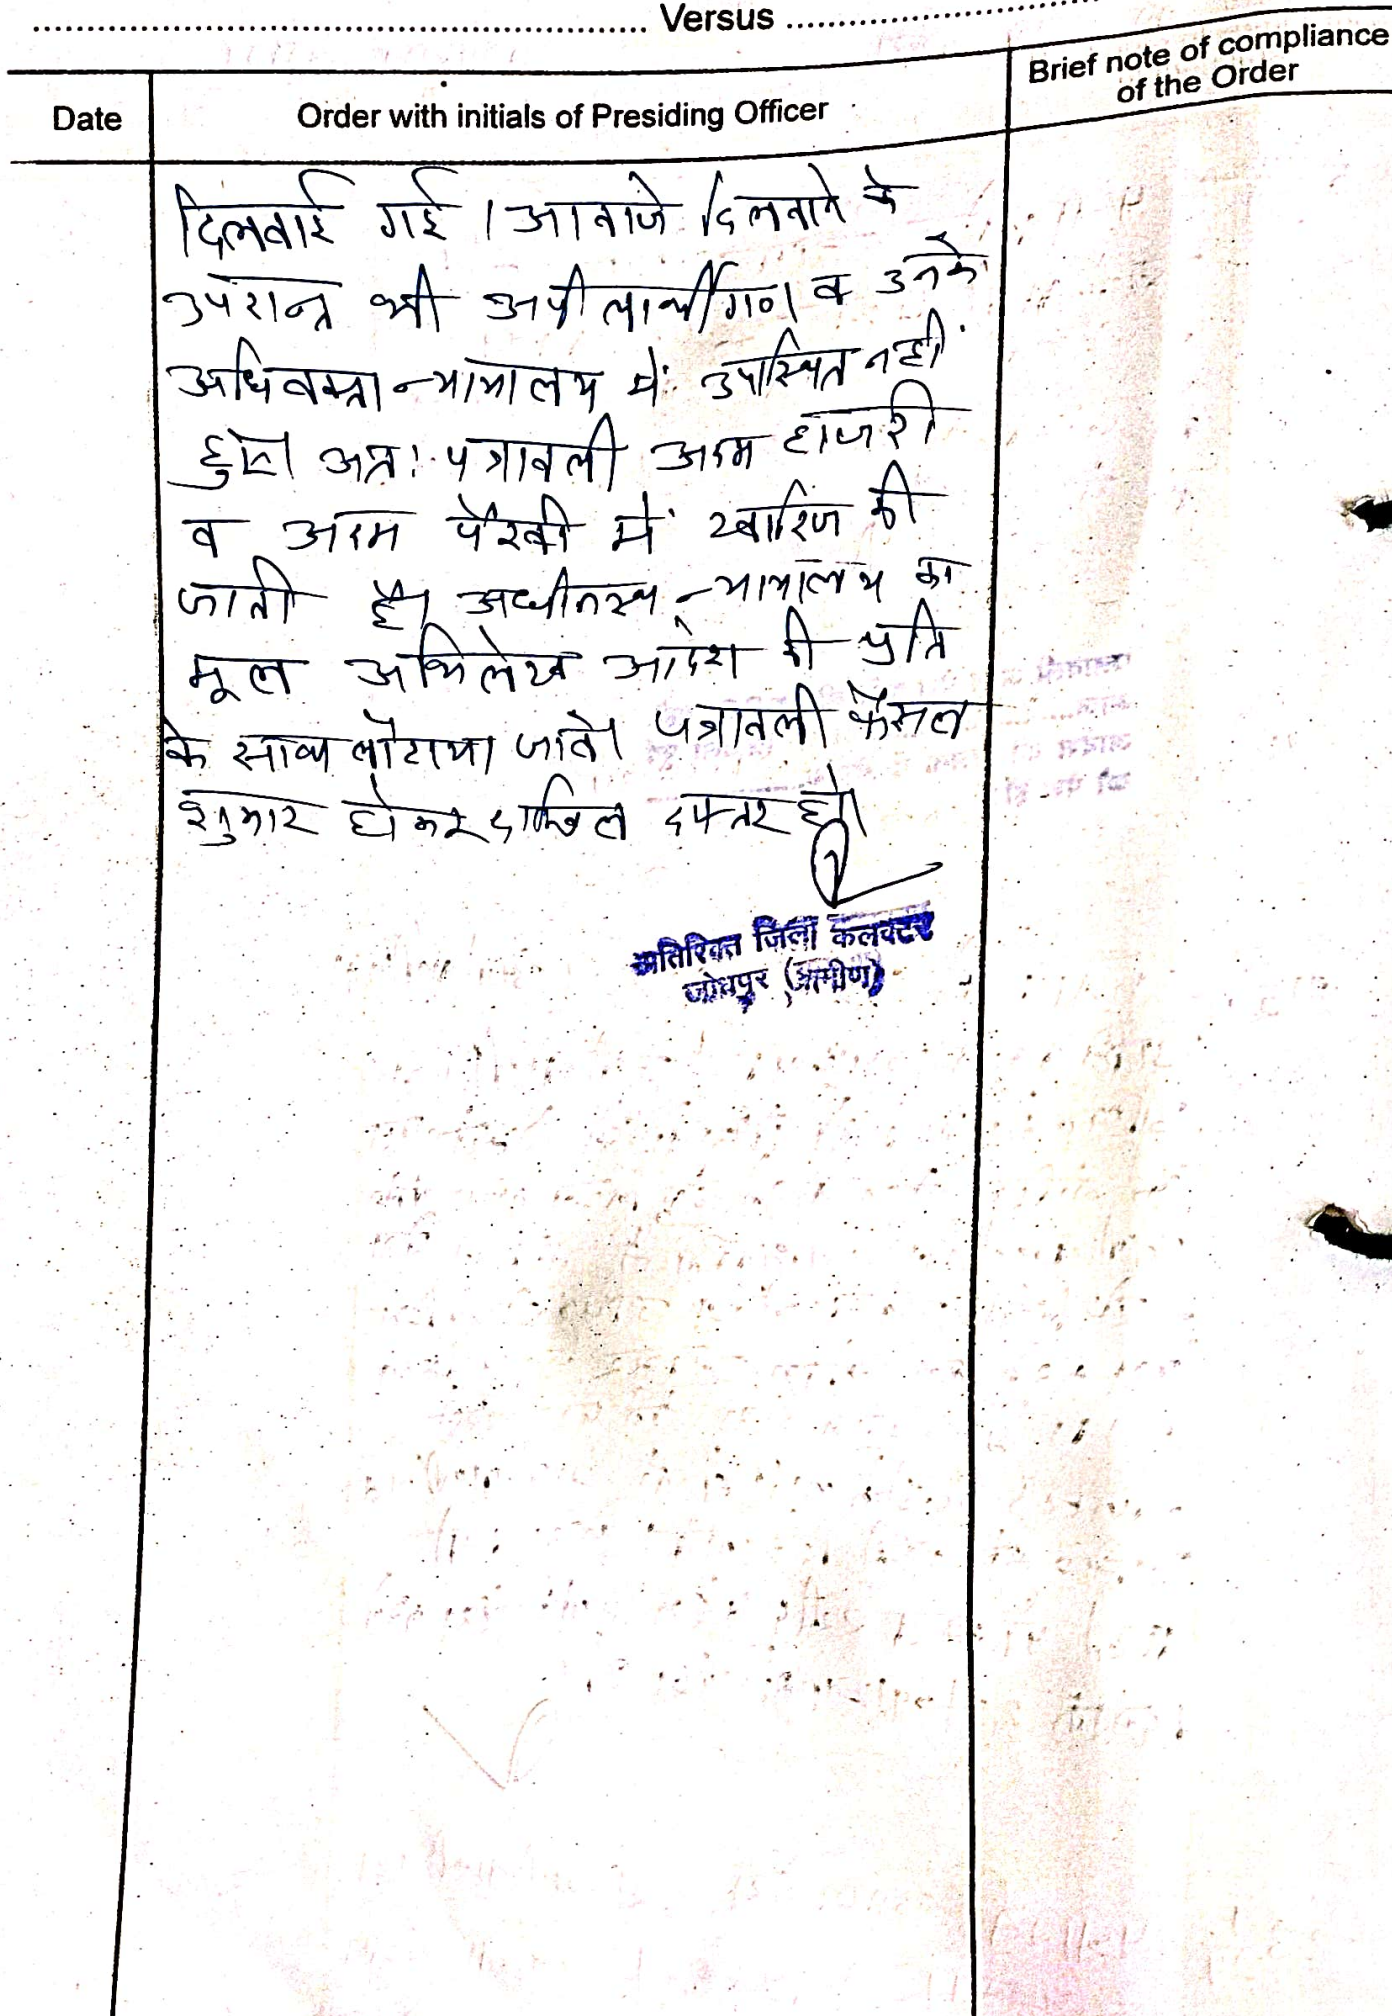 Versus
Date
Order with initials of Presiding Officer
Brief note of compliance
of the Order
दिलवाई गई। आवाजे दिलवाने के
उपरान्त भी अपीलार्थीगण व उनके
अधिवक्ता न्यायालय में उपस्थित नहीं
हुए। अतः पत्रावली अदम हाजरी
व अदम पैरवी में खारिज की
जाती है। अधीनस्थ न्यायालय का
मूल अभिलेख आदेश की प्रति
के साथ लौटाया जावे। पत्रावली फैसल
शुमार होकर दाखिल दफ्तर हो।
अतिरिक्त जिला कलक्टर
जोधपुर (ग्रामीण)